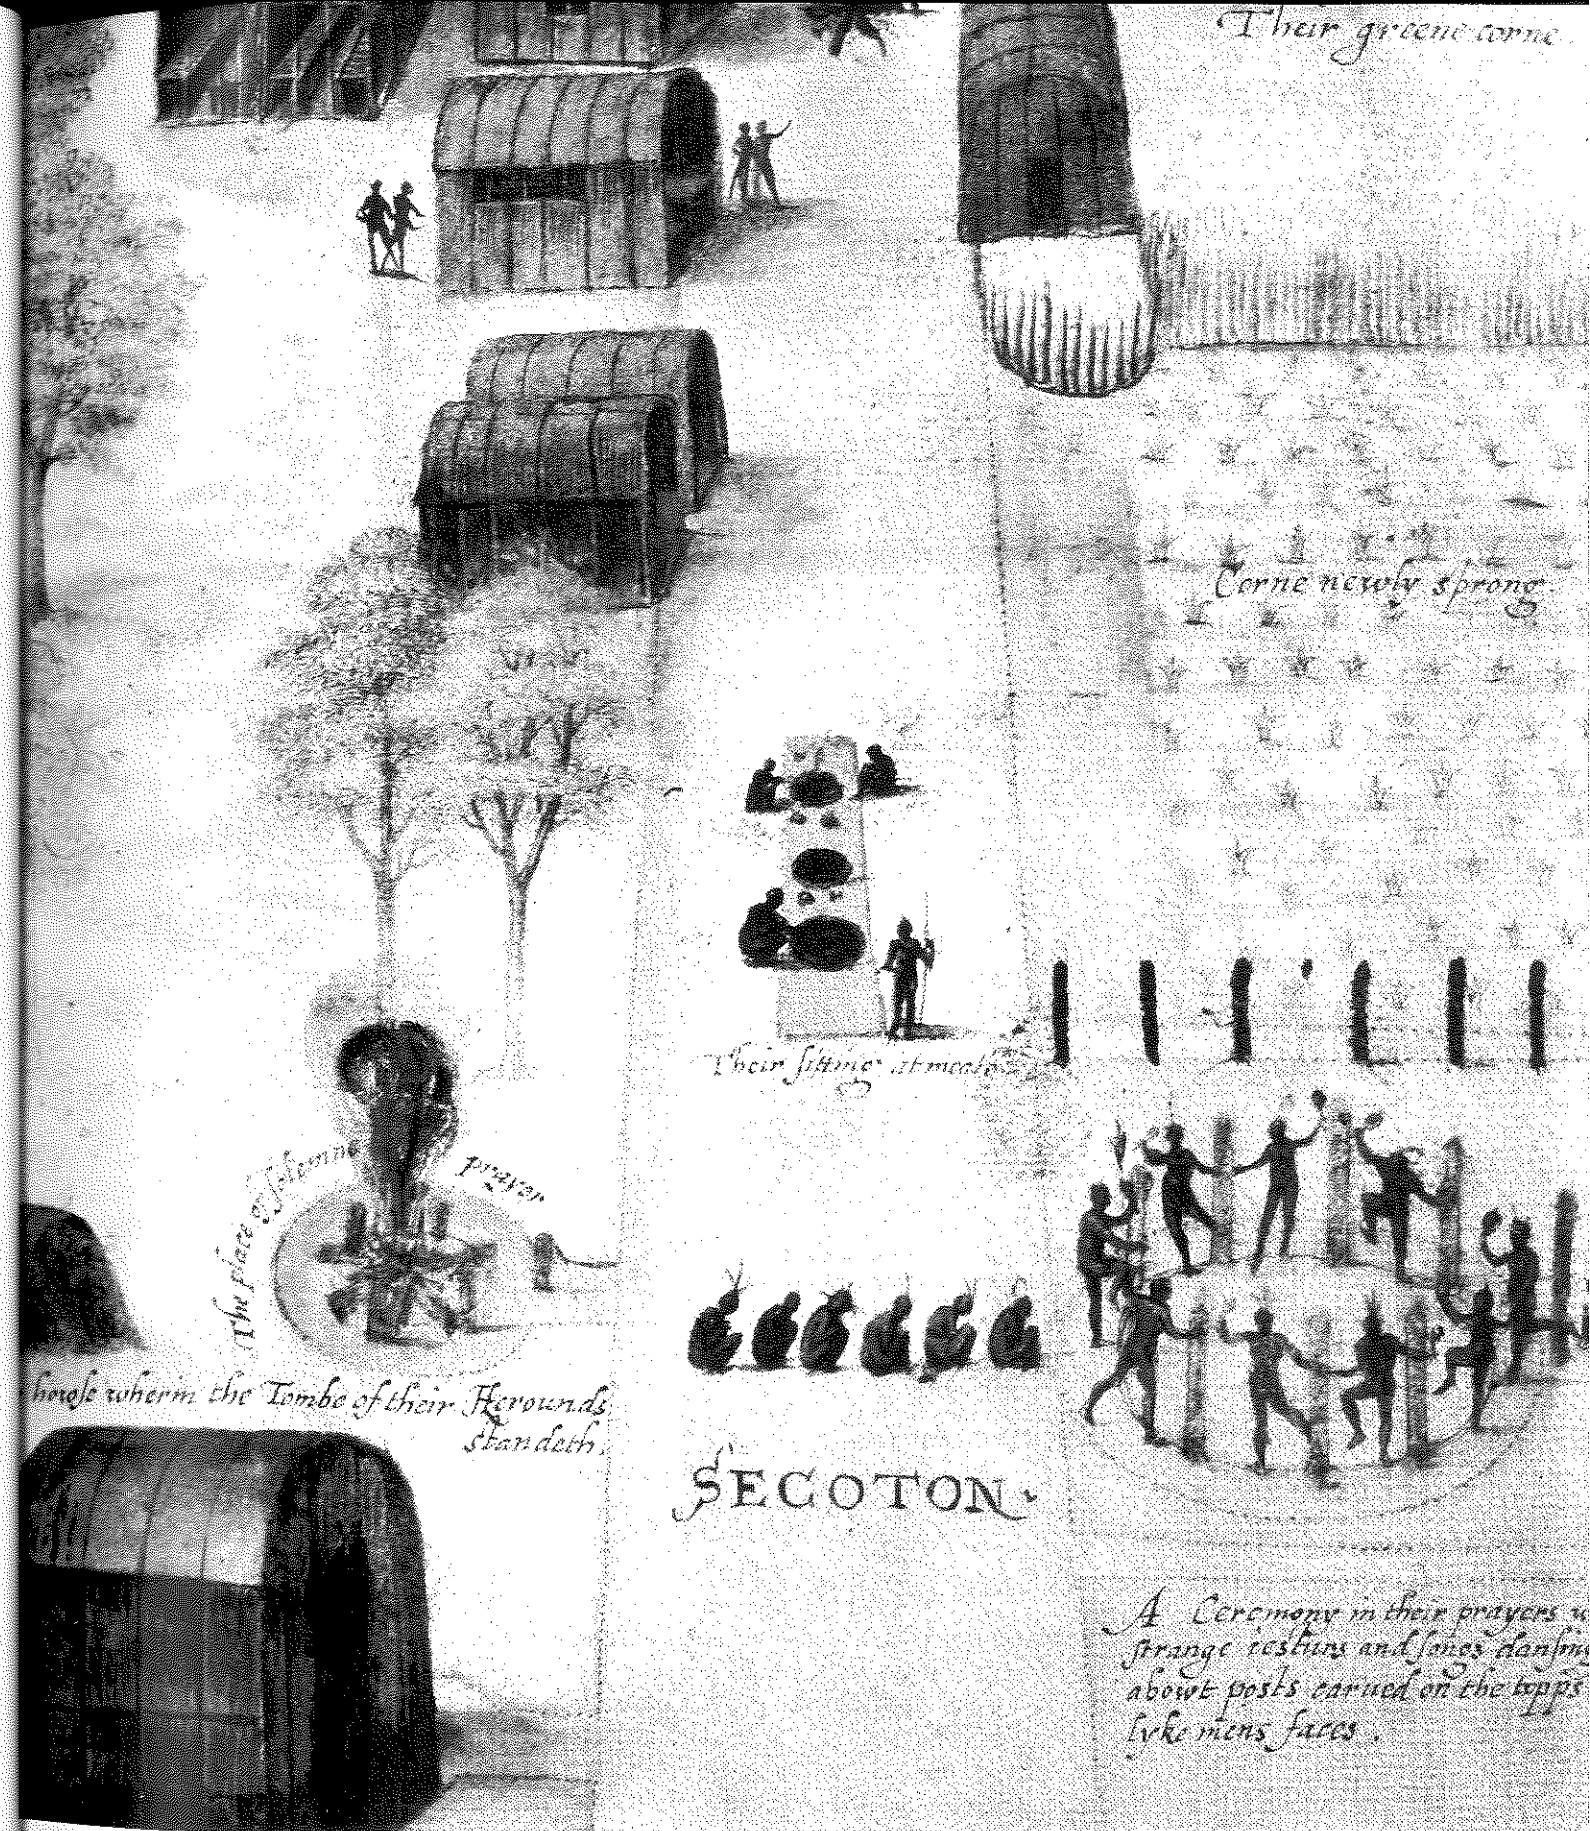 Their greene corne.
Corne newly sprong.
Their sitting at meate.
The place of solemne prayer
howse wherin the Tombe of their Herounds
standeth.
SECOTON.
A Ceremony in their prayers w
strange iesturs and songs dansing
abowt posts carued on the topps
lyke mens faces.